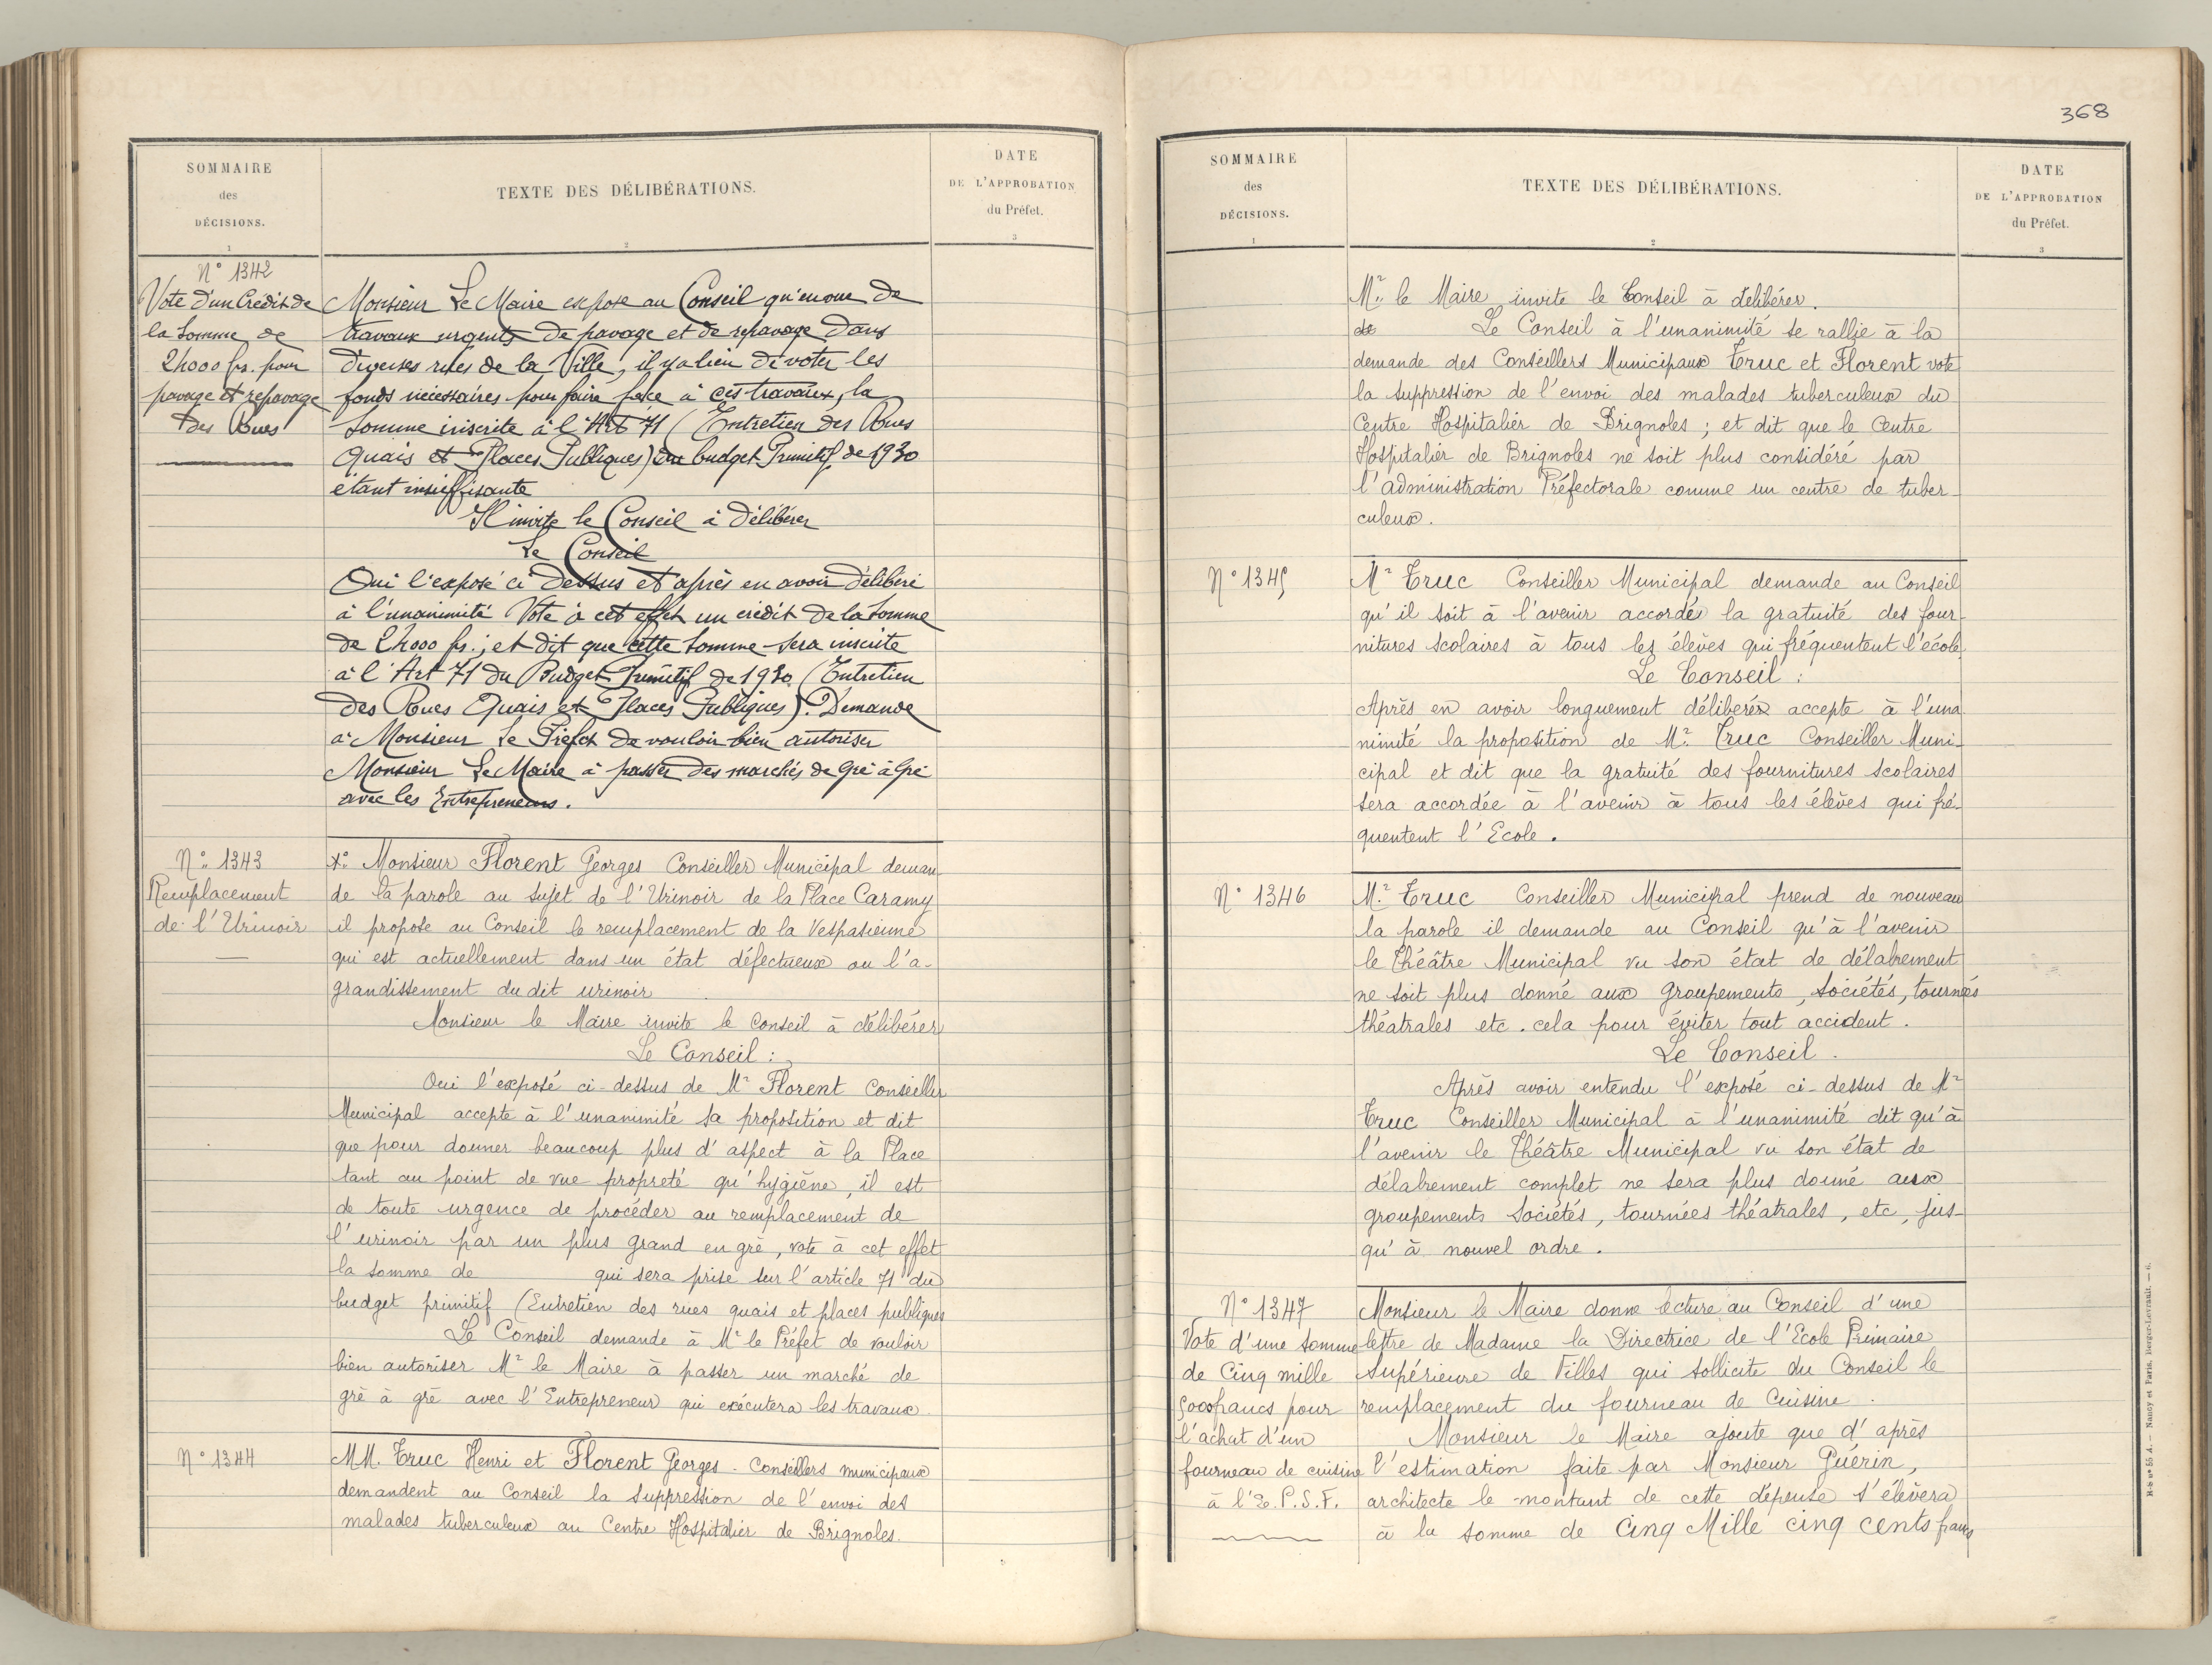 368
SOMMAIRE
des
DÉCISIONS.
1
TEXTE DES DÉLIBÉRATIONS.
2
DATE
DE L'APPROBATION
du Préfet.
3
N° 1342
Vote d'un Crédit de
la Somme de
24000 frs. pour
pavage et repavage
des Rues
Monsieur Le Maire expose au Conseil qu'en vue de
travaux urgents de pavage et de repavage dans
diverses rues de la Ville, il y a lieu de voter les
fonds nécessaires pour faire face à ces travaux, la
somme inscrite à l'Art 71 (Entretien des Rues
Quais et Places Publiques) du budget Primitif de 1930
étant insuffisante
Il invite le Conseil à délibérer
Le Conseil
Oui l'exposé ci dessus et après en avoir délibéré
à l'unanimité Vote à cet effet un crédit de la somme
de 24000 frs.; et dit que cette somme sera inscrite
à l'Art 71 du Budget Primitif de 1930 (Entretien
des Rues Quais et Places Publiques). Demande
à Monsieur Le Préfet de vouloir bien autoriser
Monsieur Le Maire à passer des marchés de Gré à Gré
avec les Entrepreneurs.
N° 1343
Remplacement
de l'Urinoir
Monsieur Florent Georges Conseiller Municipal deman-
de la parole au sujet de l'Urinoir de la Place Caramy
il propose au Conseil le remplacement de la Vespasienne
qui est actuellement dans un état défectueux ou l'a-
grandissement du dit urinoir
Monsieur le Maire invite le Conseil à délibérer
Le Conseil :
Oui l'exposé ci-dessus de Mr Florent Conseiller
Municipal accepte à l'unanimité sa proposition et dit
que pour donner beaucoup plus d'aspect à la Place
tant au point de vue propreté qu'hygiène, il est
de toute urgence de procéder au remplacement de
l'urinoir par un plus grand en grè, vote à cet effet
la somme de qui sera prise sur l'article 71 du
budget primitif (Entretien des rues quais et places publiques
Le Conseil demande à Mr le Préfet de vouloir
bien autoriser Mr le Maire à passer un marché de
gré à gré avec l'Entrepreneur qui exécutera les travaux.
N° 1344
MM. Truc Henri et Florent Georges - Conseillers municipaux
demandent au Conseil la suppression de l'envoi des
malades tuberculeux au Centre Hospitalier de Brignoles.
SOMMAIRE
des
DÉCISIONS.
1
TEXTE DES DÉLIBÉRATIONS.
2
DATE
DE L'APPROBATION
du Préfet.
3
Mr. le Maire invite le Conseil à délibérer.
de Le Conseil à l'unanimité se rallie à la
demande des Conseillers Municipaux Truc et Florent vote
la suppression de l'envoi des malades tuberculeux du
Centre Hospitalier de Brignoles ; et dit que le Centre
Hospitalier de Brignoles ne soit plus considéré par
l'administration Préfectorale comme un centre de tuber-
culeux.
N° 1345
Mr Truc Conseiller Municipal demande au Conseil
qu'il soit à l'avenir accordée la gratuité des four-
nitures scolaires à tous les élèves qui fréquentent l'école
Le Conseil :
Après en avoir longuement délibérér accepte à l'una
nimité la proposition de Mr. Truc Conseiller Muni-
cipal et dit que la gratuité des fournitures scolaires
sera accordée à l'avenir à tous les élèves qui fré-
quentent l'Ecole.
N° 1346
Mr. Truc Conseiller Municipal prend de nouveau
la parole il demande au Conseil qu'à l'avenir
le Théâtre Municipal vu son état de délabrement
ne soit plus donné aux groupements, sociétés, tournées
théatrales etc. cela pour éviter tout accident.
Le Conseil.
Après avoir entendu l'exposé ci-dessus de Mr
Truc Conseiller Municipal à l'unanimité dit qu'à
l'avenir le Théâtre Municipal vu son état de
délabrement complet ne sera plus donné aux
groupements Sociétés, tournées théatrales, etc, jus-
qu'à nouvel ordre.
N° 1347
Vote d'une somme
de Cinq mille
5000francs pour
l'achat d'un
fourneau de cuisine
à l'E. P. S. F.
Monsieur le Maire donne lecture au Conseil d'une
lettre de Madame la Directrice de l'Ecole Primaire
Supérieure de Filles qui sollicite du Conseil le
remplacement du fourneau de Cuisine.
Monsieur le Maire ajoute que d'après
l'estimation faite par Monsieur Guérin,
architecte le montant de cette dépense s'élèvera
à la somme de Cinq Mille cinq cents francs
H-S n° 55 A. — Nancy et Paris, Berger-Levrault. — 6.